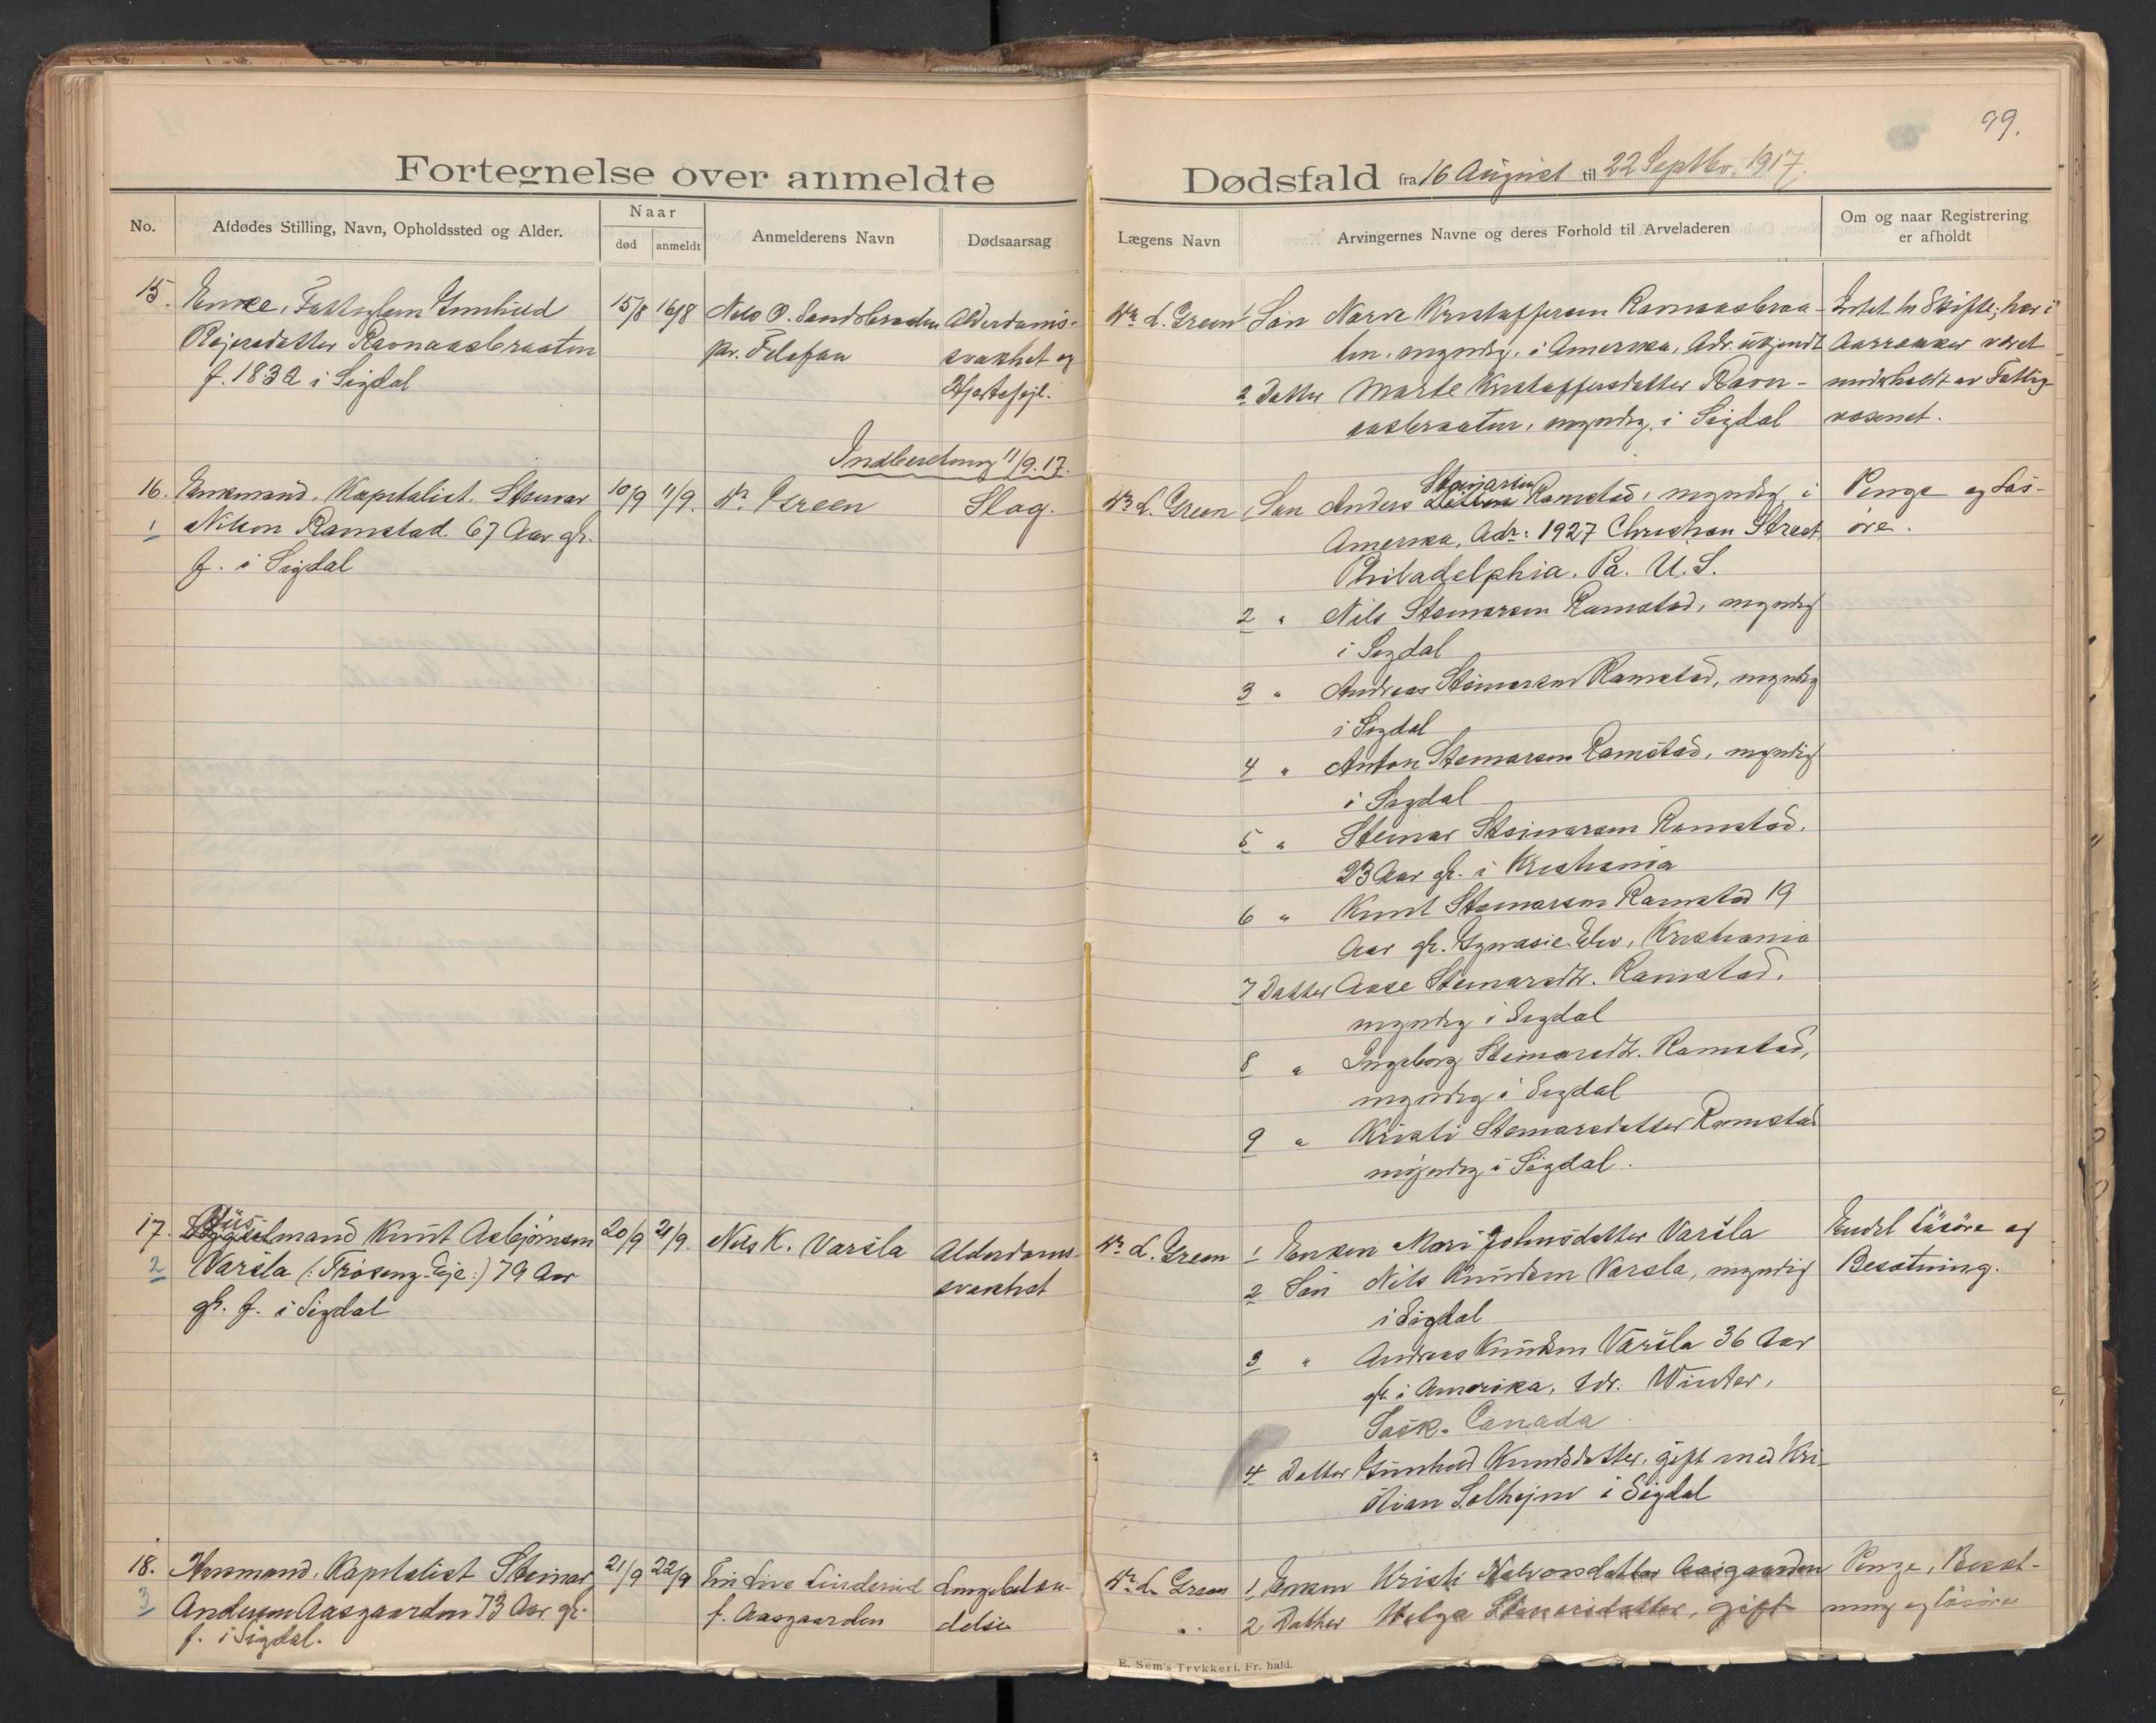 99.
Fortegnelse over anmeldte Dødsfald fra 16 August til 22 Septbr. 1917.
No.
Afdødes Stilling, Navn, Opholdssted og Alder.
Naar
død
anmeldt
Anmelderens Navn
Dødsaarsag
Lægens Navn
Arvingernes Navne og deres Forhold til Arveladeren
Om og naar Registrering
er afholdt
15.
Enke, Fattiglem Gunhild
Reiersdatter Ravnaasbraaten
f. 1832 i Sigdal
15/8
16/8
Nils O. Sandsbraaten
pr. Telefon
Alderdoms-
svakhet og
Hjertefejl.
Dr. L. Green
1 Søn Narve Kristoffersen Ravnaasbraa-
ten, myndig, i Amerika, Adr. ukjendt
2 Datter Marte Kristoffersdatter Ravn-
aasbraaten, myndig, i Sigdal
Intet til Skifte; har i
Aarrækker været
underholdt av Fattig-
væsenet.
Indberetning 11/9.17.
16.
1
Enkemand, Kapitalist Steinar
Nilsen Ramstad 67 Aar gl.
f. i Sigdal
10/9
11/9.
Dr. Green
Slag.
Dr. L. Green
1 Søn Anders Steinarsen Ramstad, myndig, i
Amerika, Adr: 1927 Christian Street
Philadelphia. Pa. U.S.
2 " Nils Steinarsen Ramstad, myndig
i Sigdal
3 " Andreas Steinarsen Ramstad, myndig
i Sigdal
4 " Anton Steinarsen Ramstad, myndig
i Sigdal
5 " Steinar Steinarsen Ramstad,
23 Aar gl. i Kristiania
6 " Knut Steinarsen Ramstad 19
Aar gl. Gymnasie-Elev, Kristiania
7 Datter Aase Steinarsdtr. Ramstad,
myndig i Sigdal
8 " Ingeborg Steinarsdtr. Ramstad,
myndig i Sigdal
9 " Kristi Steinarsdatter Ramstad
myndig i Sigdal.
Penge og Løs-
øre.
17.
2
Husmand Knut Asbjørnsen
Varsla (: Frøseng-Eje :) 79 Aar
gl. f. i Sigdal
20/9
21/9.
Nils K. Varsla
Alderdoms-
svakhet
Dr. L. Green
1 Enken Mari Johnsdatter Varsla
2 Søn Nils Knudsen Varsla, myndig
i Sigdal
3 " Andreas Knudsen Varsla 36 Aar
gl. i Amerika, Adr. Winter,
Sask. Canada
4 Datter Gunhild Knudsdatter, gift med Kri-
stian Solhejm i Sigdal
Endel Løsøre og
Besætning.
18.
3
Kapitalist Steinar
Andersen Aasgaarden 73 Aar gl.
f. i Sigdal.
21/9
22/9
Live Linderud
f. Aasgaarden
Lungebetæn-
delse
Dr. L. Green
1 Enken Kristi Halvorsdatter Aasgaarden
2 Datter Helga Steinarsdatter, gift
Penge, Besæt-
ning og Løsøre
E. Sem's Trykkeri. Fr. hald.